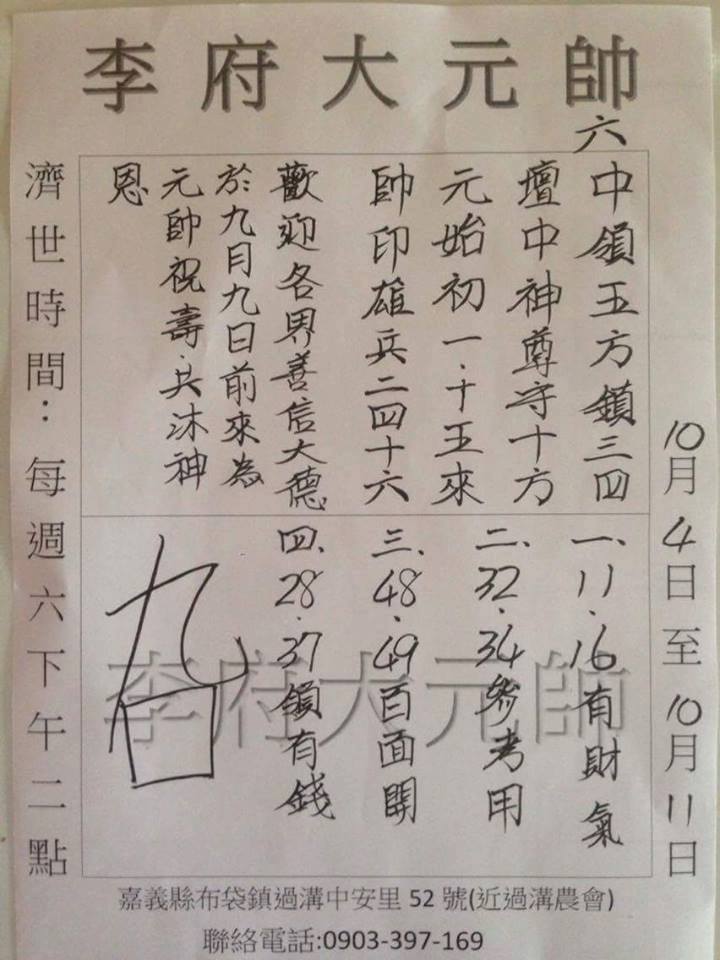 李府大元帥
10月4日至10月11日
六中領五方鎮三四
壇中神尊守十方
元始初一·十五來
帥印雄兵二四十六
歡迎各界善信大德
於九月九日前來為
元帥祝壽·共沐神
恩
一、11·16有財氣
二、32·34參考用
三、48·49百面開
四、28·37領有錢
九
李府大元帥
濟世時間：每週六下午二點
嘉義縣布袋鎮過溝中安里52號(近過溝農會)
聯絡電話:0903-397-169